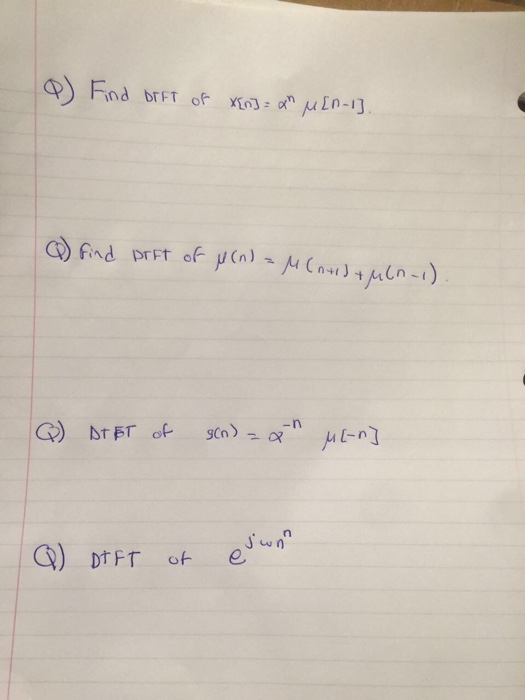 Q) Find DTFT of x[n] = αⁿ μ[n-1].
Q) find DTFT of μ(n) = μ(n+1) + μ(n-1).
Q) DTFT of g(n) = α⁻ⁿ μ[-n]
Q) DTFT of e^jωn^n